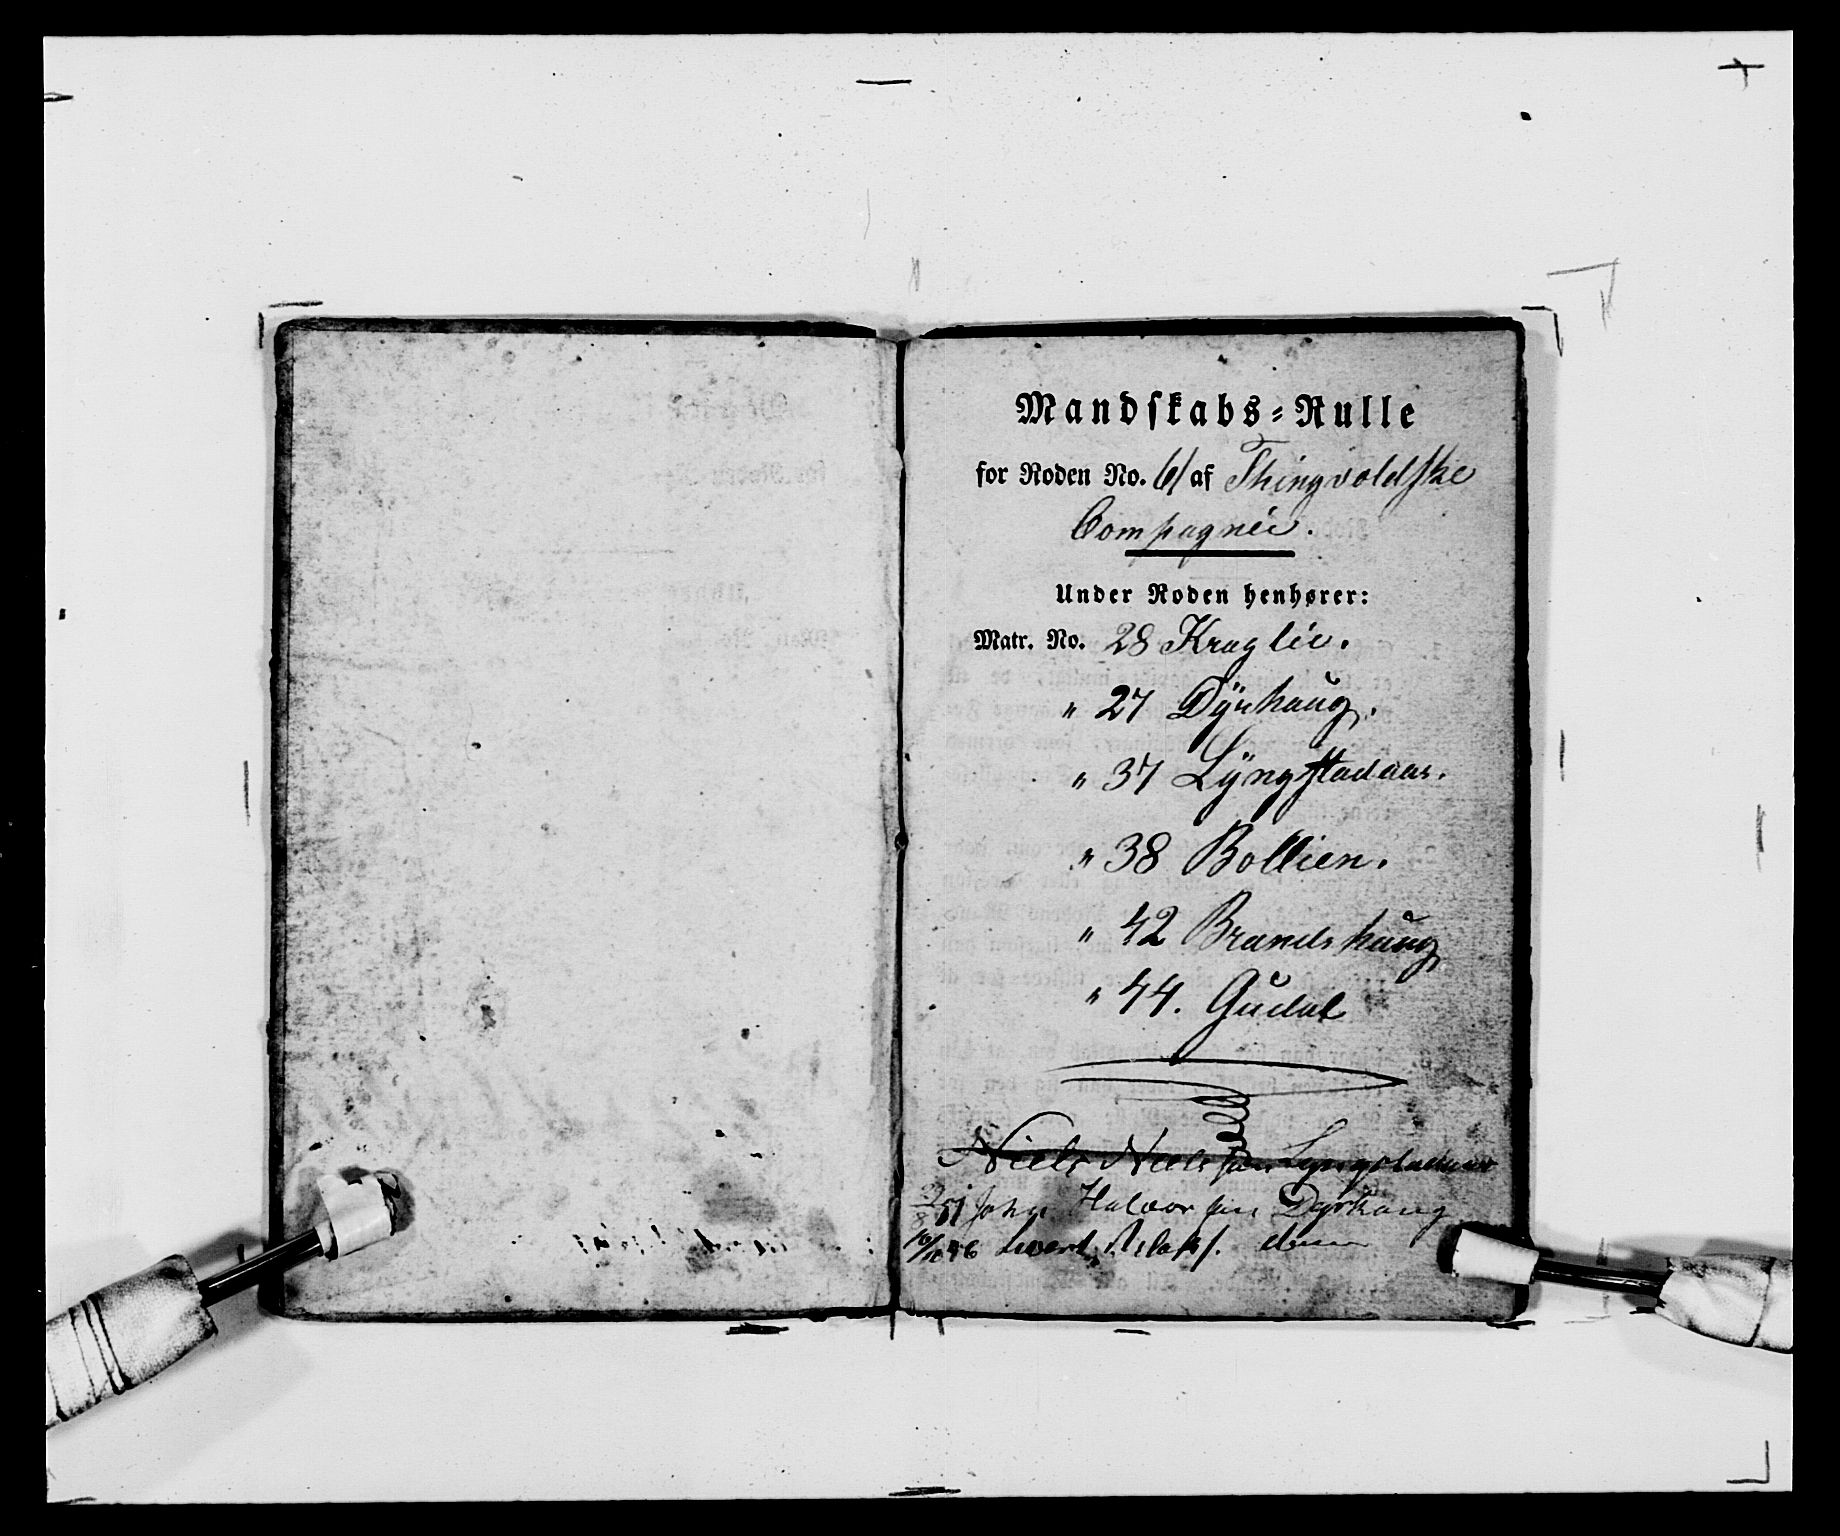 Mandskabs-Rulle
for Roden No. 61 af Thingvoldske
Compagnie.
Under Roden henhører:
Matr. No. 28 Kraglie.
" 27 Dÿrhaug.
" 37 Lÿngstadaas.
" 38 Bollien.
" 42 Brandshaug
" 44. Gudal
Niels Nielssen Lyngstadaas
51 John Halvorsen Dyrhaug
46 Sivert